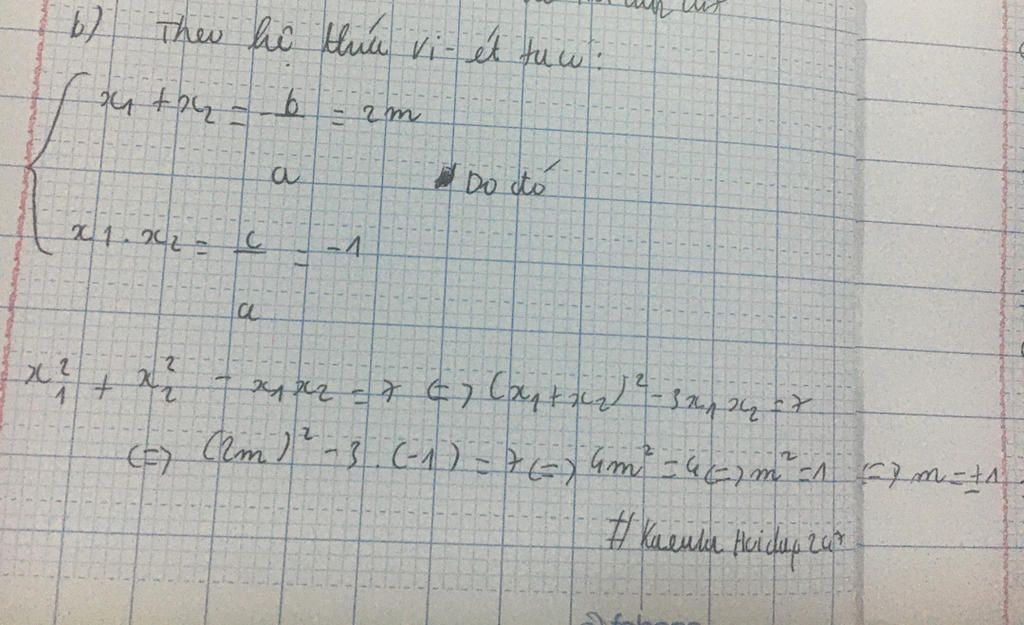 b) Theo hệ thức vi-ét ta có:
x₁ + x₂ = -b/a = 2m
Do đó
x₁ . x₂ = c/a = -1
x₁² + x₂² - x₁x₂ = 7 <=> (x₁ + x₂)² - 3x₁x₂ = 7
<=> (2m)² - 3 . (-1) = 7 <=> 4m² = 4 <=> m² = 1 <=> m = ±1
# Hoidap 247